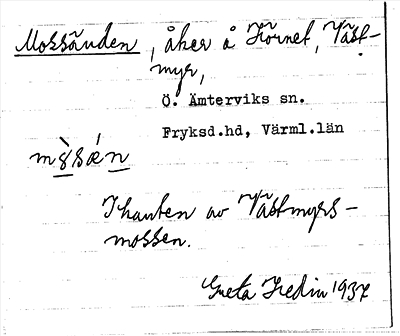 Mossänden, åker å Hörnet, Väst-
myr,
Ö. Ämterviks sn.
Fryksd.hd, Värml.län
I kanten av Västmyrs-
mossen.
Greta Hedin 1937